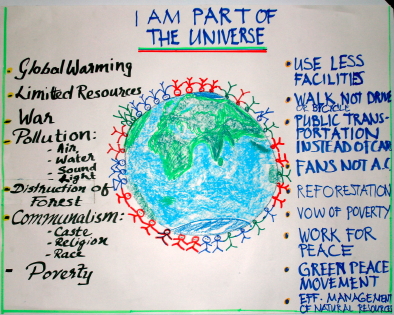 I AM PART OF
THE UNIVERSE
Global Warming
Limited Resources
War
Pollution:
Air
Water
Sound
Light
Distruction of
Forest
Communalism:
Caste
Religion
Race
Poverty
USE LESS
FACILITIES
WALK NOT DRIVE
OR BICYCLE
PUBLIC TRANS-
PORTATION
INSTEAD OF CAR
FANS NOT A.C.
REFORESTATION
VOW OF POVERTY
WORK FOR
PEACE
GREEN PEACE
MOVEMENT
EFF. MANAGEMENT
OF NATURAL RESOURCES